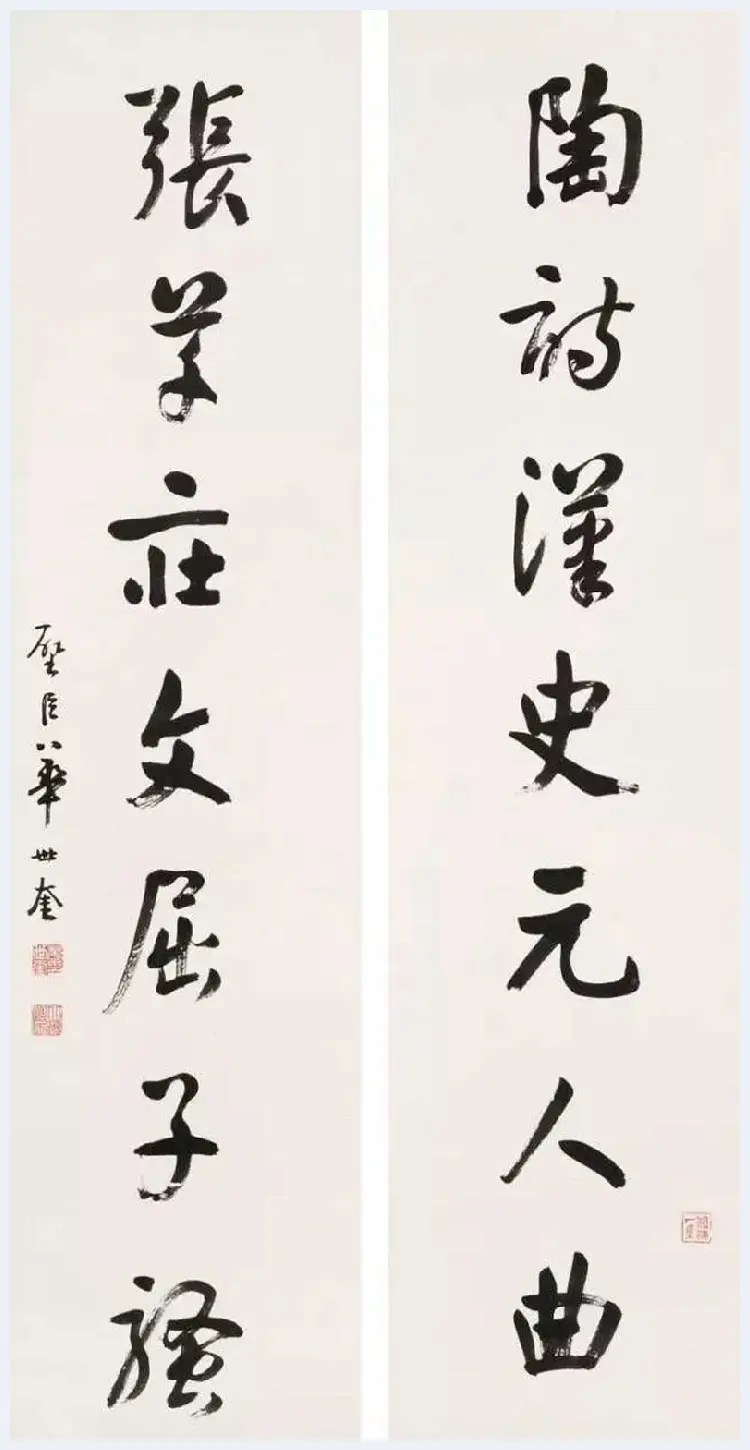 陶詩漢史元人曲
張草莊文屈子騷
璧臣華世奎